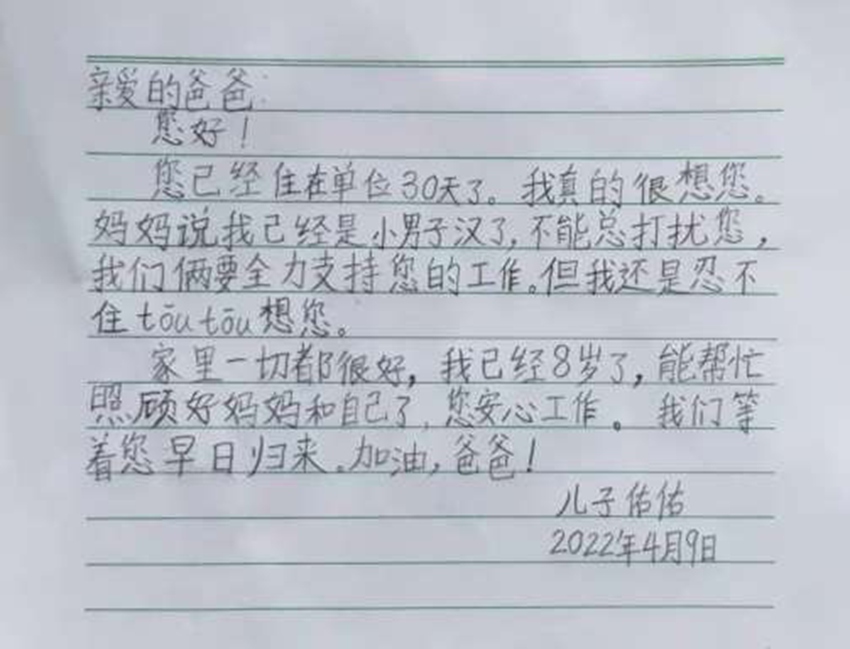 亲爱的爸爸:
您好!
您已经住在单位30天了。我真的很想您。
妈妈说我已经是小男子汉了,不能总打扰您,
我们俩要全力支持您的工作。但我还是忍不
住tōutōu想您。
家里一切都很好,我已经8岁了,能帮忙
照顾好妈妈和自己了,您安心工作。我们等
着您早日归来。加油,爸爸!
儿子佑佑
2022年4月9日